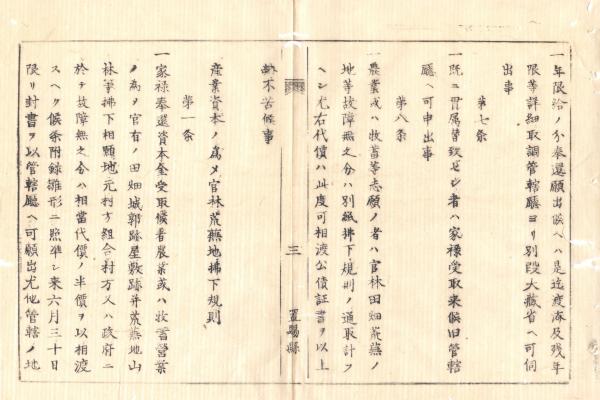 一年限給ノ分奉還願出候ヘハ是迄度済及残年
限等詳細取調管轄廳ヨリ別段大蔵省ヘ可伺
出事
第七条
一既ニ貫属替致セシ者ハ家禄受取来候旧管轄
廳ヘ可申出事
第八条
一農業或ハ牧畜等志願ノ者ハ官林田畑荒蕪ノ
地等故障無之分ハ別紙拂下規則ノ通取計フ
ヘシ尤右代價ハ此度可相渡公債証書ヲ以上
三
置賜縣
納不苦候事
産業資本ノ為メ官林荒蕪地拂下規則
第一条
一家禄奉還資本金受取候者農業或ハ牧畜営業
ノ為メ官有ノ田畑城郭跡屋敷跡并荒蕪地山
林等拂下相願地元村方組合村方又ハ政府ニ
於テ故障無之分ハ相當代價ノ半價ヲ以相渡
スヘク候条附録雛形ニ照準シ来六月三十日
限リ封書ヲ以管轄廳ヘ可願出尤他管轄ノ地